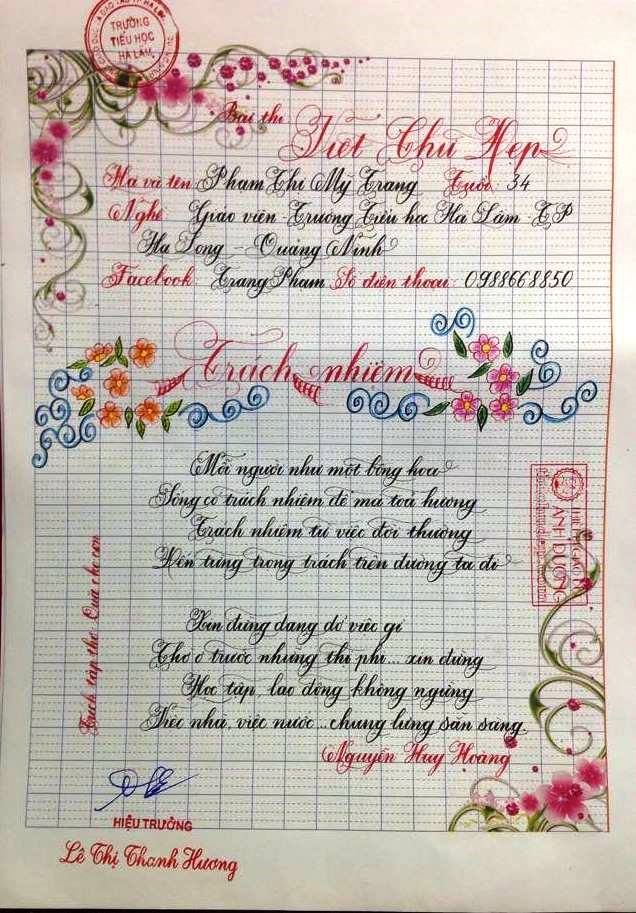 TRƯỜNG
TIỂU HỌC
HÀ LẦM
Bài thi
Viết Chữ Đẹp
Họ và tên: Phạm Thị Mỹ Trang Tuổi: 34
Nghề: Giáo viên - Trường Tiểu học Hà Lầm - TP
Hạ Long - Quảng Ninh
Facebook: Trang Pham Số điện thoại: 0988668850
Trách nhiệm
Mỗi người như một bông hoa
Sống có trách nhiệm để mà toả hương
Trách nhiệm từ việc đời thường
Đến từng trọng trách trên đường ta đi
Xin đừng dang dở việc gì
Thờ ơ trước những thị phi... xin đừng
Học tập, lao động không ngừng
Việc nhà, việc nước... chung lưng sẵn sàng.
Nguyễn Huy Hoàng
Trích tập thơ: Quà cho con
ÁNH DƯƠNG
HIỆU TRƯỞNG
Lê Thị Thanh Hương